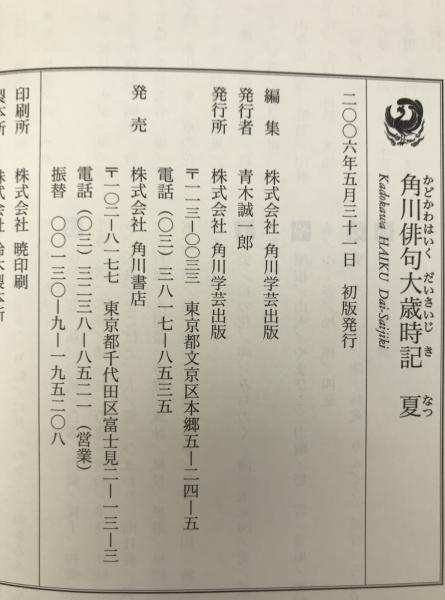 角川俳句大歳時記　夏
かどかわはいく　だいさいじき　なつ
Kadokawa HAIKU Dai-Saijiki
二〇〇六年五月三十一日　初版発行
編集　株式会社 角川学芸出版
発行者　青木誠一郎
発行所　株式会社 角川学芸出版
〒一一三―〇〇三三　東京都文京区本郷五―二四―五
電話（〇三）三八一七―八五三五
発売　株式会社 角川書店
〒一〇二―八一七七　東京都千代田区富士見二―一三―三
電話（〇三）三二三八―八五二一（営業）
振替　〇〇一三〇―九―一九五二〇八
印刷所　株式会社 暁印刷
製本所　株式会社 鈴木製本所